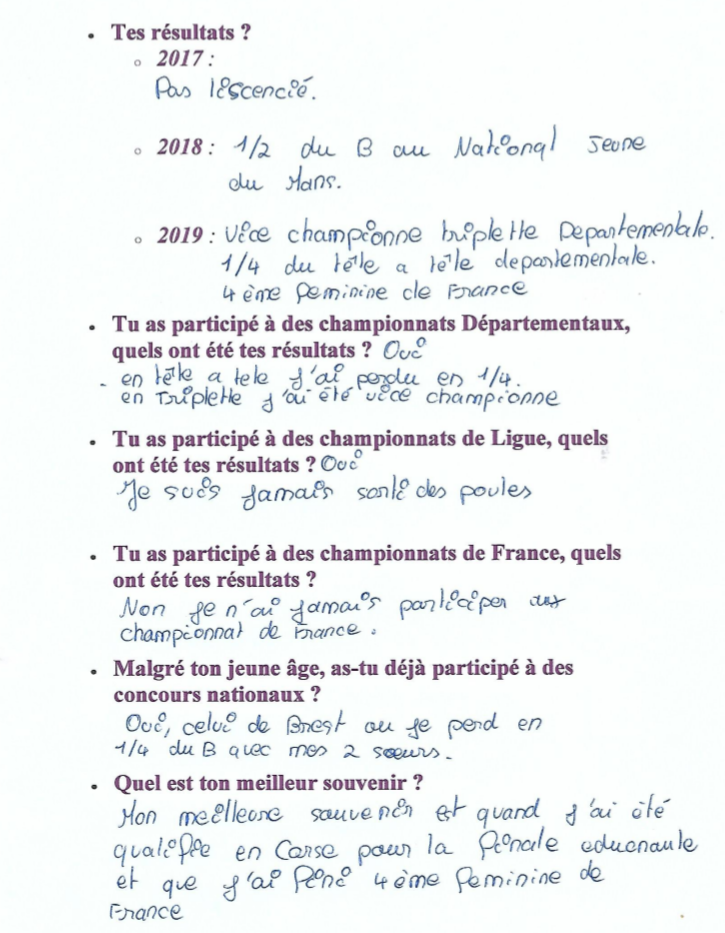 • Tes résultats ?
○ 2017 :
Pas liscencié.
○ 2018 : 1/2 du B au National Jeune
du Mans.
○ 2019 : Vice championne triplette Departementale.
1/4 du tête a tête departementale.
4 ème feminine de France
• Tu as participé à des championnats Départementaux,
quels ont été tes résultats ? Oui
- en tête a tete j'ai perdu en 1/4.
en Triplette j'ai été vice championne
• Tu as participé à des championnats de Ligue, quels
ont été tes résultats ? Oui
Je suis jamais sortie des poules
• Tu as participé à des championnats de France, quels
ont été tes résultats ?
Non je n'ai jamais participer aux
championnat de France.
• Malgré ton jeune âge, as-tu déjà participé à des
concours nationaux ?
Oui, celui de Brest ou je perd en
1/4 du B avec mes 2 sœurs.
• Quel est ton meilleur souvenir ?
Mon meilleure souvenir est quand j'ai été
qualifiée en Corse pour la finale
et que j'ai fini 4 ème feminine de
France